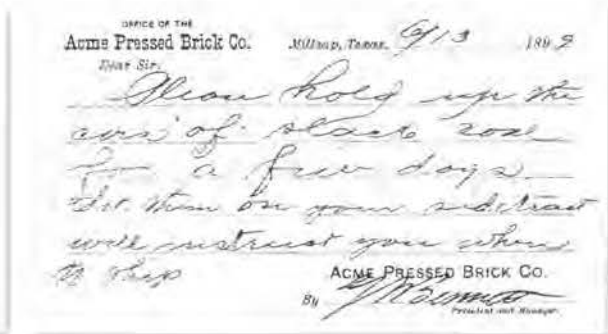 OFFICE OF THE
Acme Pressed Brick Co. Millsap, Texas. 6/13 1899
Dear Sir.
Please hold up the
cars of slack coal
for a few days
Set them on your sidetrack
will instruct you when
to ship
ACME PRESSED BRICK CO.
By Bennett
President and Manager.